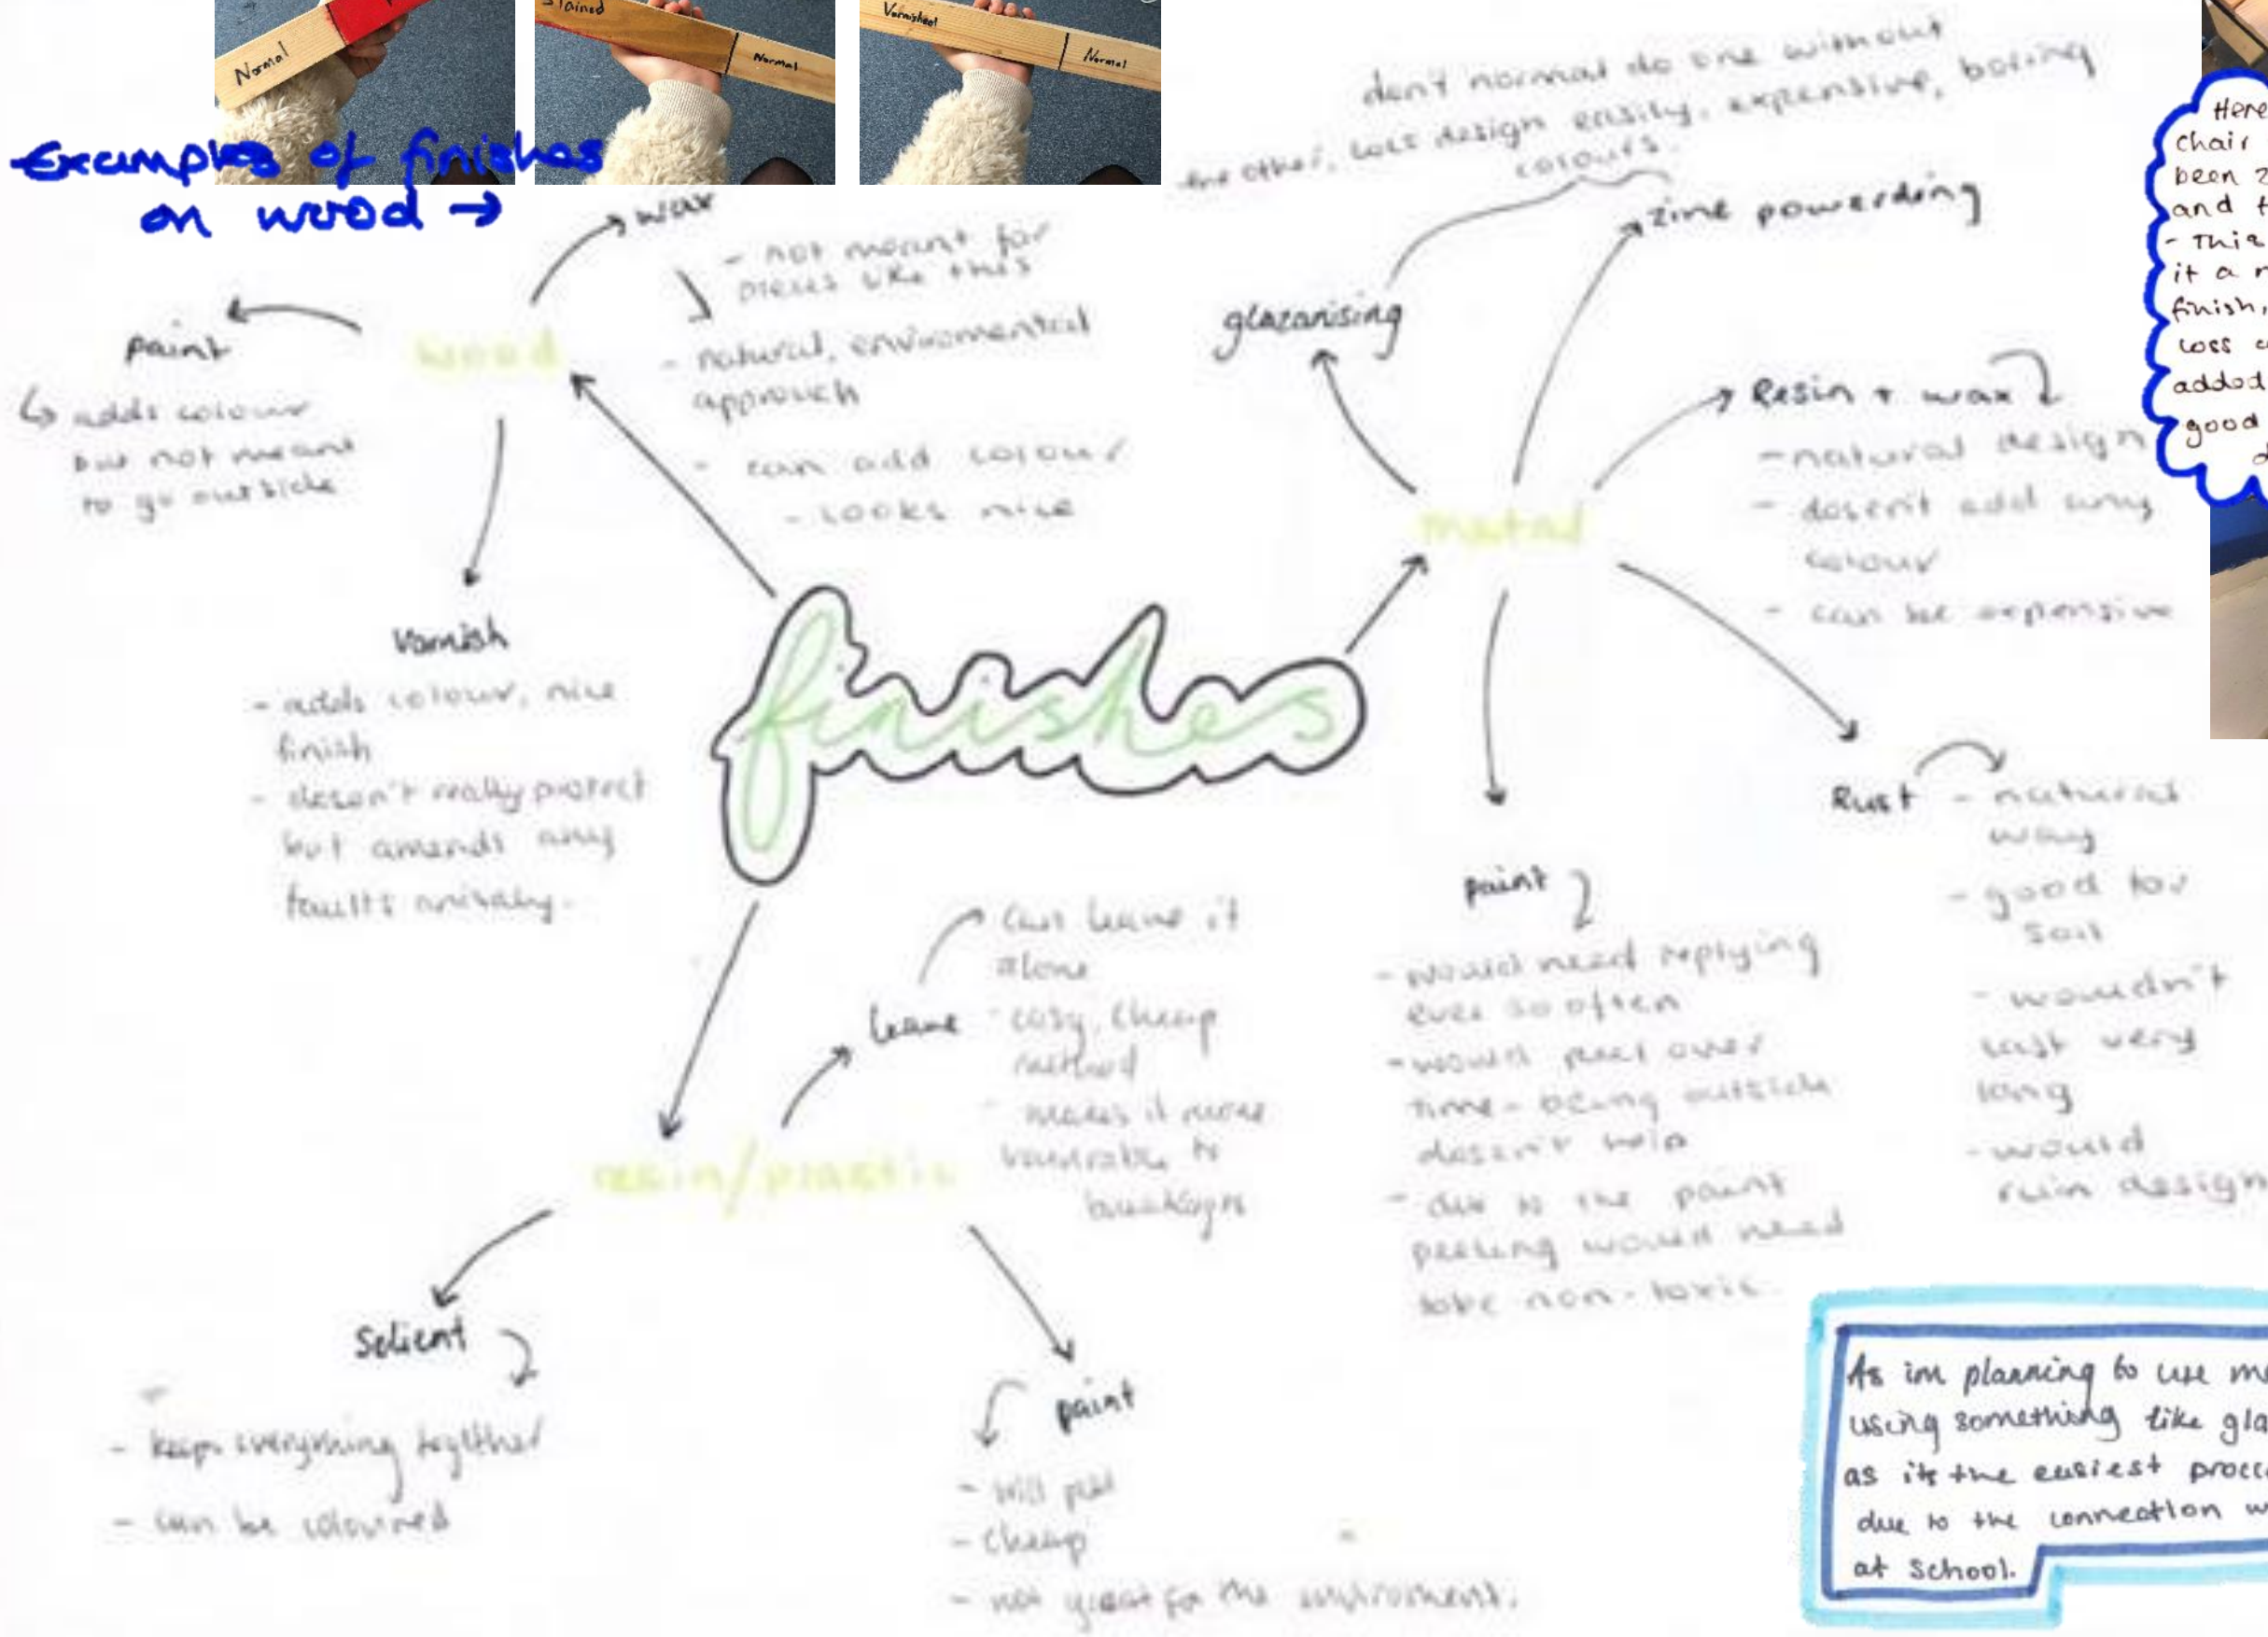 Normal
Stained
Normal
Varnished
Normal
Examples of finishes
on wood →
don't normal do one without
the other, loss design easily, expensive, boring
colours.
wax
- not meant for
pieces like this
- natural, enviromental
approuch
- can add colour
- looks nice
paint
adds colour
but not meant
to go outside
wood
Varnish
- adds colour, nice
finish
- doesn't really protect
but amends any
faults
finishes
glazanising
zinc powerding
metal
Resin + wax
- natural design
- dosen't add any
colour
- can be expensive
Rust - natural
way
- good for
soil
- wouldn't
last very
long
- would
ruin design
paint
- would need replying
ever so often
- would peel over
time - being outside
doesn't help
- due to the paint
peeling would need
tobe non-toxic.
leave
can leave it
alone
- easy, cheap
method
- makes it more
to
resin/plastic
Selient
- keeps everything together
- can be coloured
paint
- will peel
- cheap
- not great for the enviroment.
Here
Chair
been
and
- This
it a
finish,
loss
added
good
As im planning to use
using something like
as its the easiest
due to the connection
at school.